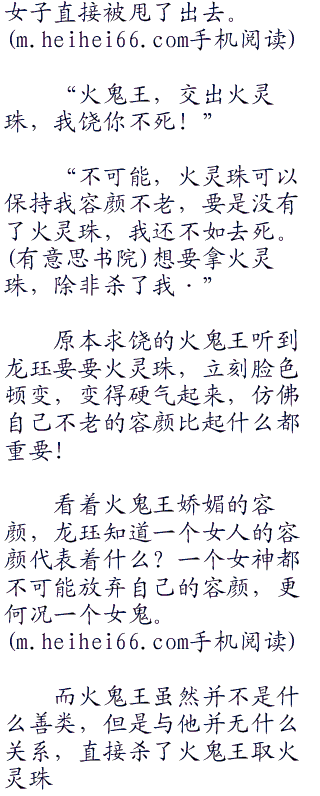 女子直接被甩了出去。
(m.heihei66.com手机阅读)
“火鬼王，交出火灵
珠，我饶你不死！”
“不可能，火灵珠可以
保持我容颜不老，要是没有
了火灵珠，我还不如去死。
(有意思书院)想要拿火灵
珠，除非杀了我·”
原本求饶的火鬼王听到
龙珏要要火灵珠，立刻脸色
顿变，变得硬气起来，仿佛
自己不老的容颜比起什么都
重要！
看着火鬼王娇媚的容
颜，龙珏知道一个女人的容
颜代表着什么？一个女神都
不可能放弃自己的容颜，更
何况一个女鬼。
(m.heihei66.com手机阅读)
而火鬼王虽然并不是什
么善类，但是与他并无什么
关系，直接杀了火鬼王取火
灵珠